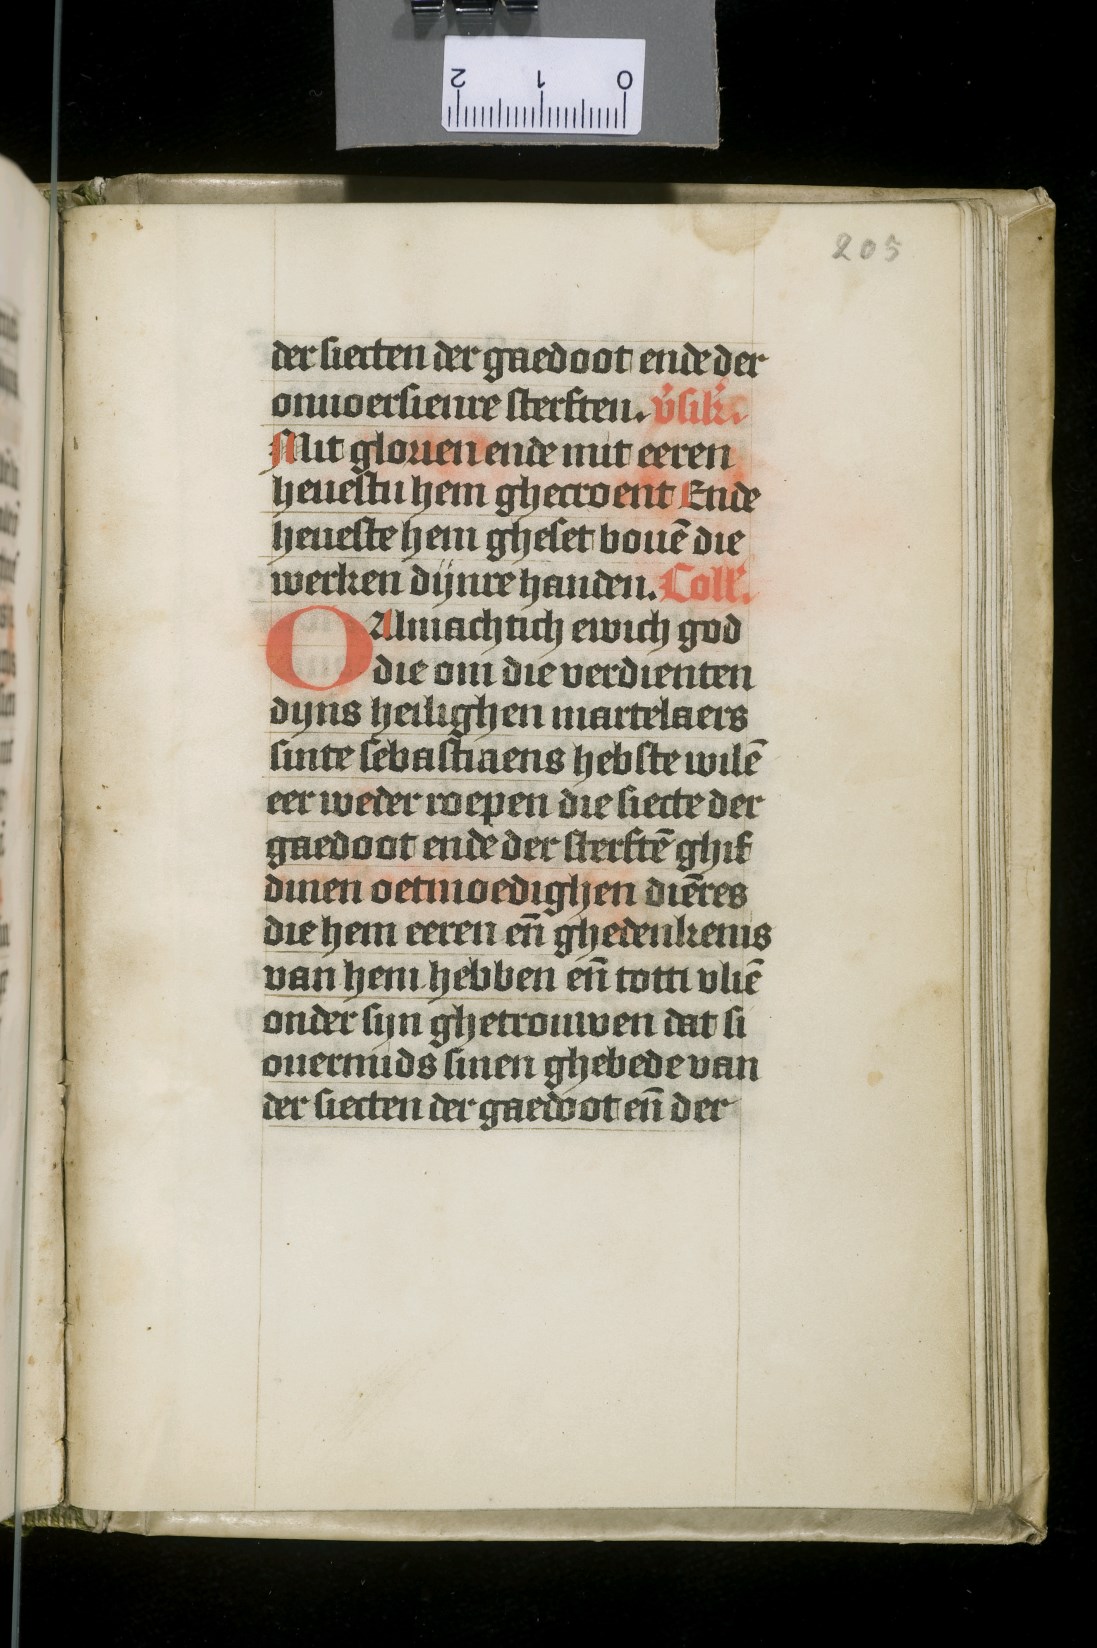 2 1 0
205
der siecten der gaedoot ende der
onuoersienre sterften. v̾sik̾.
Mit glorien ende mit eeren
heuestu hem ghecroent Ende
heueste hem gheset bouē die
werken dijnre handen. Coll̾.
O Almachtich ewich god
die om die verdienten
dijns heilighen martelaers
sinte sebastiaens hebste wilē
eer weder roepen die siecte der
gaedoot ende der sterftē ghif
dinen oetmoedighen diēres
die hem eeren en̄ ghedenkenis
van hem hebben en̄ totti vliē
onder sijn ghetrouwen dat si
ouermids sinen ghebede van
der siecten der gaedoot en̄ der